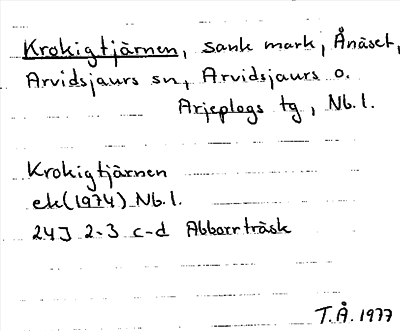 Krokigtjärnen, sank mark, Ånäset,
Arvidsjaurs sn, Arvidsjaurs o.
Arjeplogs tg, Nb.l.
Krokigtjärnen
ek(1974) Nb.l.
24J 2-3 c-d Abborrträsk
T.Å. 1977